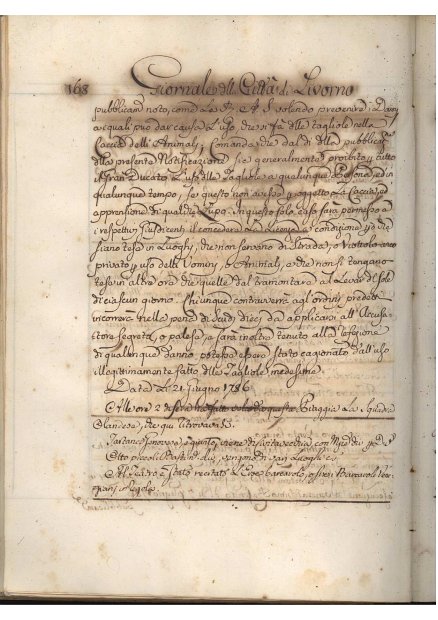 168 Giornale della Città di Livorno
pubblicam. noto, come S. A. R. volendo prevenire i Danni,
a quali può dar causa l'uso, che si fa delle tagliole nella
Caccia delli Animali, Comanda che dal dì della pubblicaz.
della presente Notificazione sia generalmente proibito p. tutto
il Gran Ducato l'uso delle Tagliole a qualunque Persona, ed in
qualunque tempo, se questo non avesse p. oggetto la Caccia, ed
apprensione di qualche Lupo. In questo solo caso sarà permesso a
i respettivi Giusdicenti il concedere la Licenza a condizione, che
siano tese in Luoghi, che non servano di Strada, o
privato p. uso delli Uomini, e Animali, e che non si tengano
tese in altre ore che quelle dal tramontar al Levar di Sole
di ciascun giorno. Chiunque contravverrà agl'ordini predetti
incorrerà nella pena di Scudi dieci da applicarsi all'Accusa-
tore segreto, o palese, e sarà inoltre tenuto alla refezione
di qualunque danno potesse essere stato cagionato dall'uso
illegittimamente fatto delle Tagliole medesime.
Data Li 21 Giugno 1786
Alle ore 2 di sera questa Piaggia la Squadra
Olandese, che qui ritrovavasi.
giunto, viene di Civitavecchia, con
Otto piccoli Bastim. di vari Luoghi
Al Teatro è stata recitata